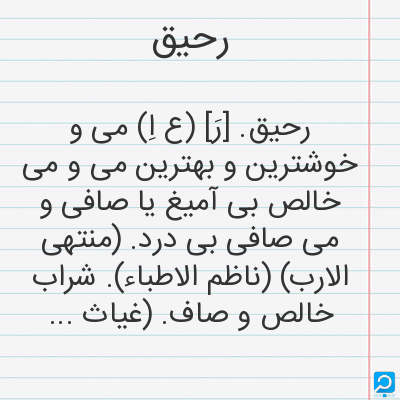 رحیق
رحیق. [رَ] (ع اِ) می و
خوشترین و بهترین می و می
خالص بی آمیغ یا صافی و
می صافی بی درد. (منتهی
الارب) (ناظم الاطباء). شراب
خالص و صاف. (غیاث ...